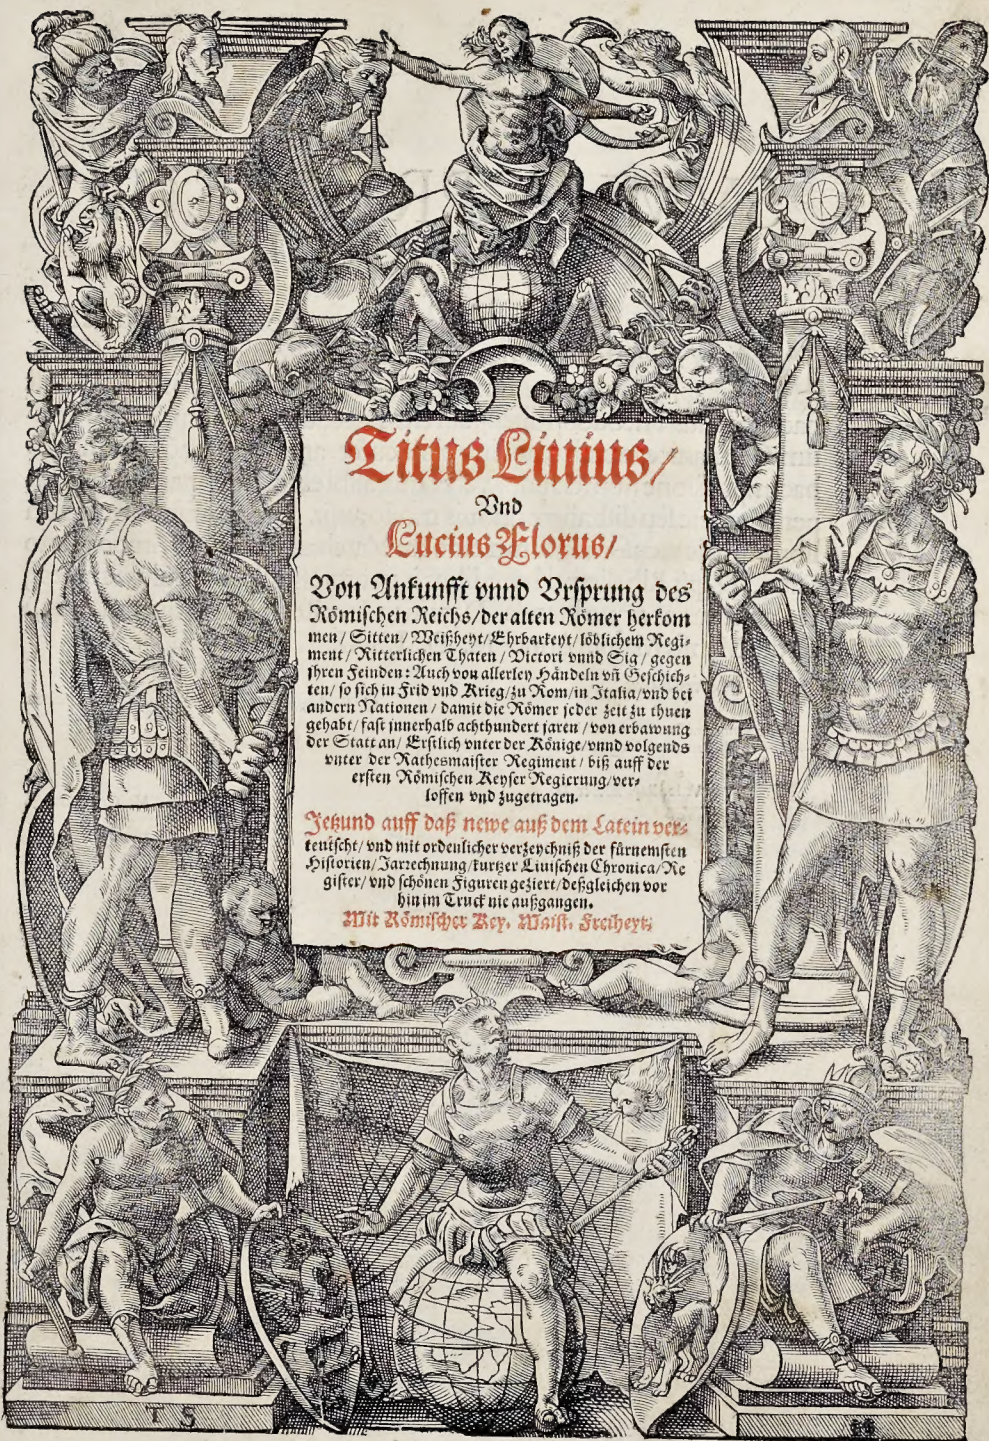 Titus Liuius/
Vnd
Lucius Florus/
Von Ankunfft vnnd Vrsprung des
Römischen Reichs/der alten Römer herkom
men/Sitten/Weißheyt/Ehrbarkeyt/löblichem Regi-
ment/Ritterlichen Thaten/Victori vnnd Sig/gegen
jhren Feinden: Auch von allerley Händeln vñ Geschich-
ten/so sich in Frid vnd Krieg/zu Rom/in Italia/vnd bei
andern Nationen/damit die Römer jeder zeit zu thuen
gehabt/fast jnnerhalb achthundert jaren/von erbawung
der Statt an/Erstlich vnter der Könige/vnnd volgends
vnter der Rathesmaister Regiment/biß auff der
ersten Römischen Keyser Regierung/ver-
loffen vnd zugetragen.
Jetzund auff daß newe auß dem Latein ver-
teutscht/vnd mit ordenlicher verzeychniß der fürnemsten
Historien/Jarrechnung/kurtzer Liuischen Chronica/Re
gister/vnd schönen Figuren geziert/deßgleichen vor
hin im Truck nie außgangen.
Mit Römischer Key. Maist. Freiheyt.
T S